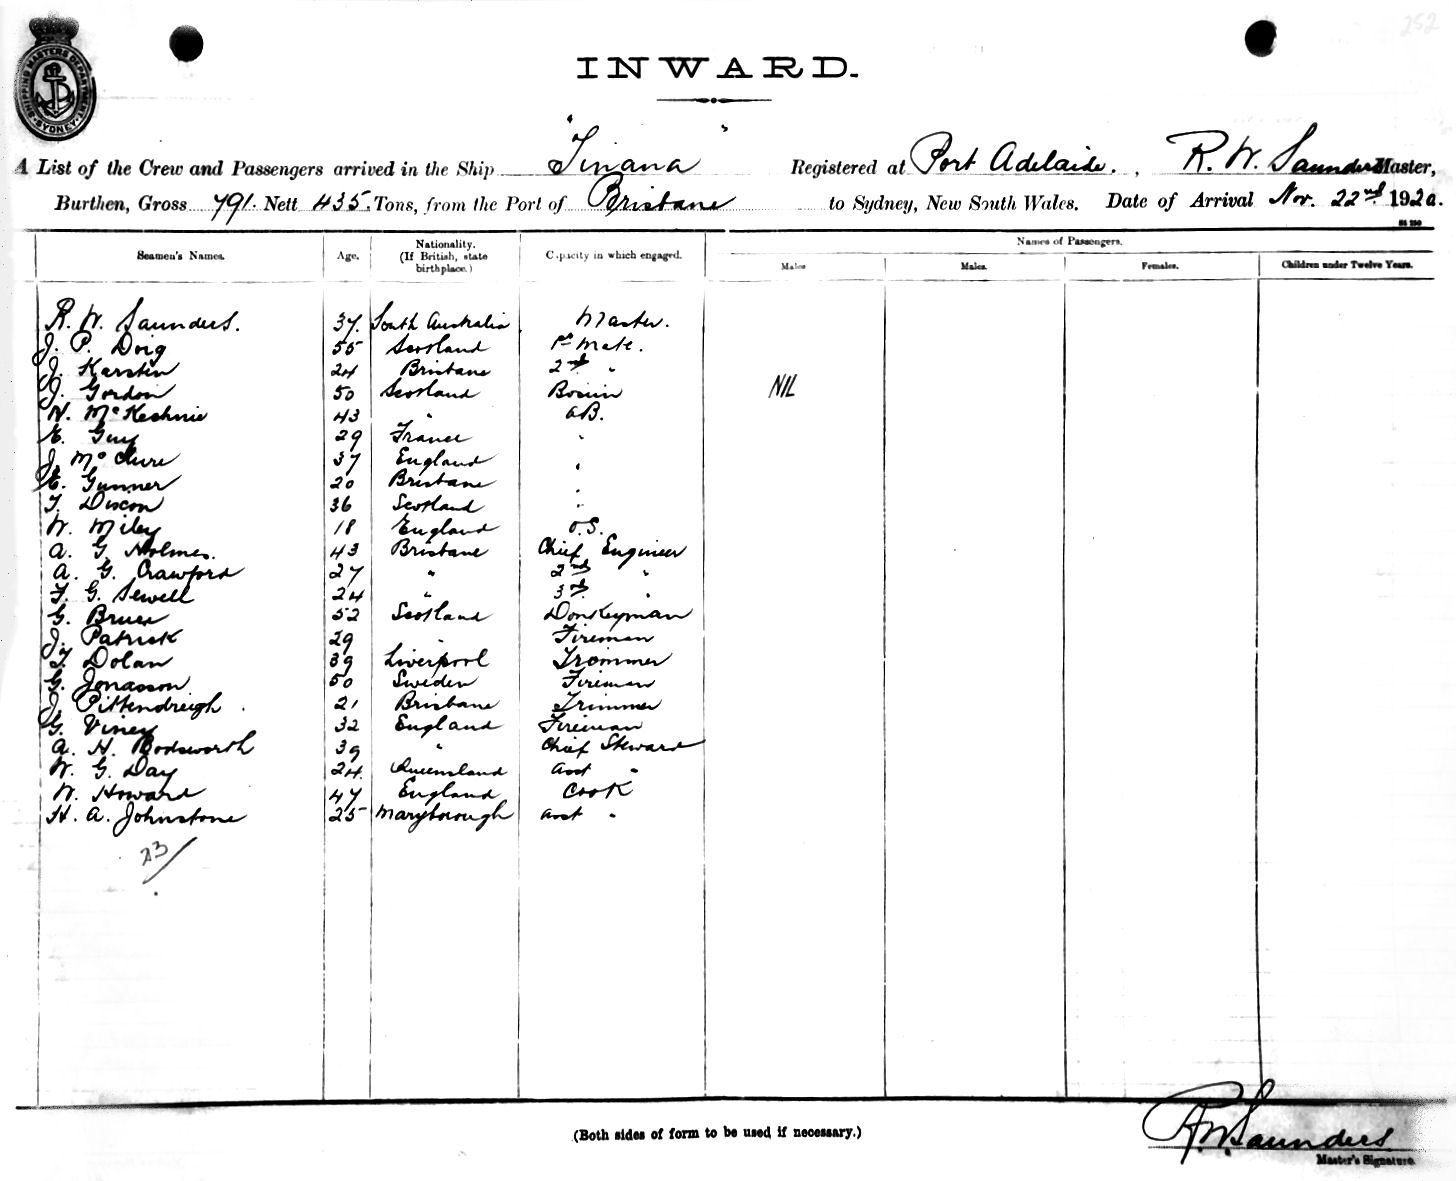 252
SHIPPING MASTERS DEPARTMENT SYDNEY
INWARD.
A List of the Crew and Passengers arrived in the Ship "Tinana" Registered at Port Adelaide, R. W. Saunders Master,
Burthen, Gross 791. Nett 435. Tons, from the Port of Brisbane to Sydney, New South Wales. Date of Arrival Nov. 22nd 1920.
Seamen's Names. Age. Nationality. (If British, state birthplace.) Capacity in which engaged. Names of Passengers.
Males Males. Females. Children under Twelve Years.
R. W. Saunders. 37. South Australia Master.
J. P. Doig 55 Scotland 1st Mate.
J. Karstin 24 Brisbane 2nd "
J. Gordon 50 Scotland Bosun NIL
N. McKechnie 43 " AB.
E. Guy 29 France "
J. McClure 37 England "
E. Gunner 20 Brisbane "
T. Dixon 36 Scotland "
W. Miley 18 England O.S.
A. G. Holmes. 43 Brisbane Chief Engineer
A. G. Crawford 27 " 2nd "
F. G. Sewell 24 " 3rd "
G. Bruce 52 Scotland Donkeyman
J. Patrick 29 " Fireman
T. Dolan 39 Liverpool Trimmer
G. Jonasson 50 Sweden Fireman
J. Pittendreigh 21 Brisbane Trimmer
G. Viney 32 England Fireman
A. H. Bodsworth 39 " Chief Steward
W. G. Day 24. Queensland Asst "
W. Howard 47 England Cook
H. A. Johnstone 25 Maryborough Asst "
23/
(Both sides of form to be used if necessary.)
R W Saunders
Master's Signature.